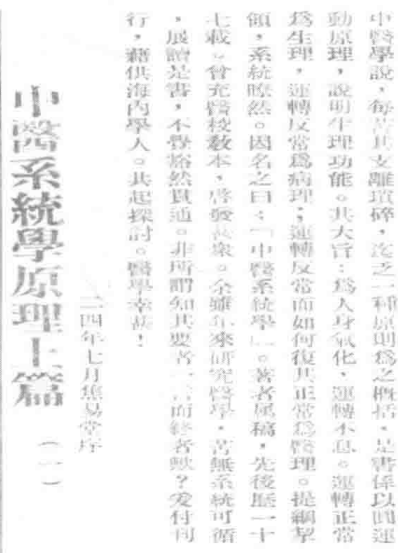 中醫學說，每苦其支離瑣碎，迄乏一種原則爲之概括，是書係以圓運
動原理，說明生理功能。其大旨：爲人身氣化，運轉不息。運轉正常
爲生理，運轉反常爲病理，運轉反常而如何復其正常爲醫理。提綱挈
領，系統瞭然。因名之曰：「中醫系統學」。著者屬稿，先後歷一十
七載。曾充醫校敎本，啓發甚衆。余雖年來硏究醫學，苦無系統可循
，展讀是書，不覺豁然貫通。非所謂知其要者一言而終者歟？爰付刊
行，藉供海內學人。共起探討。醫學幸甚！
二四年七月焦易堂序
中醫系統學原理上篇
（一）